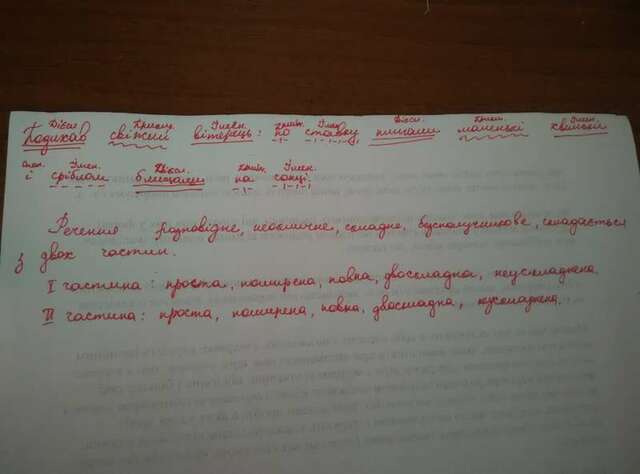 Дієсл. Прикм. Імен. прийм. Імен. Дієсл. Прикм. Імен.
Подихав свіжий вітерець: по ставку пишали маленькі хвильки
спол. Імен. Дієсл. прийм. Імен.
і сріблом блищали на сонці.
Речення розповідне, неокличне, складне, безсполучникове, складається
з двох частин.
I частина: проста, поширена, повна, двоскладна, неускладнена.
II частина: проста, поширена, повна, двоскладна,